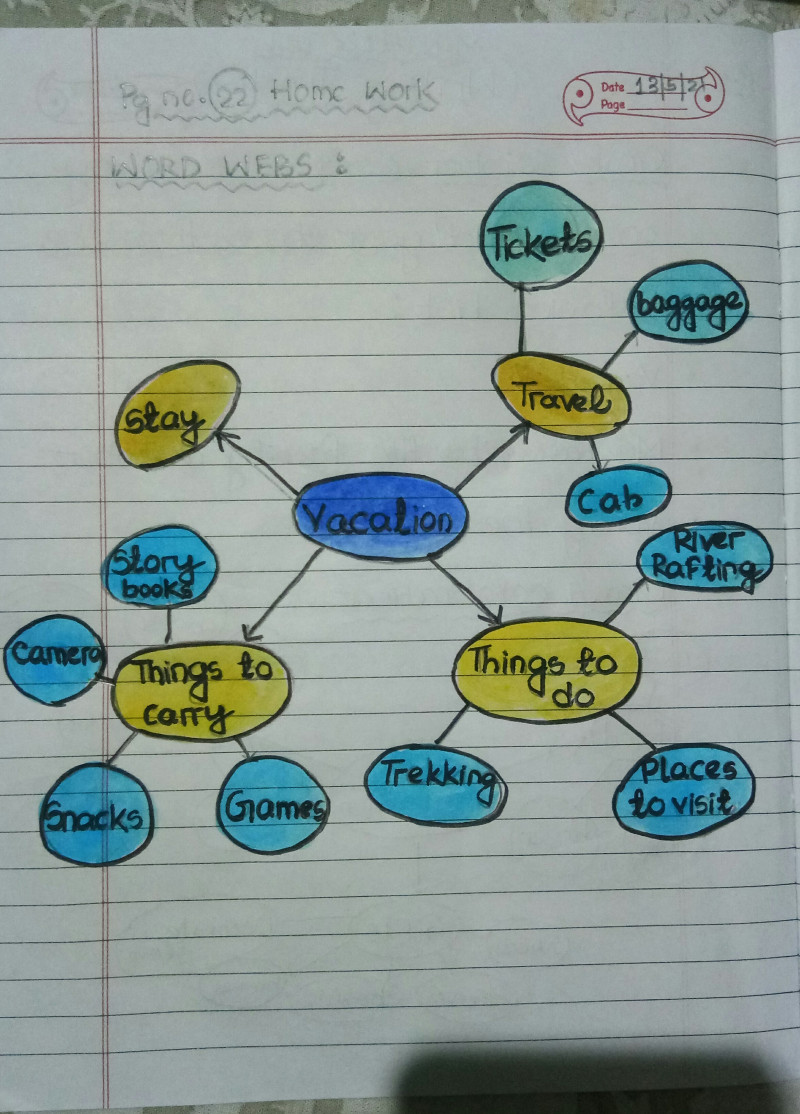 Pg no. 22 Home Work
Date 13/5/21
Page
WORD WEBS :
Tickets
baggage
Travel
Stay
Cab
Vacation
River
Rafting
Story
books
Camera
Things to
carry
Things to
do
Trekking
Places
to visit
Snacks
Games